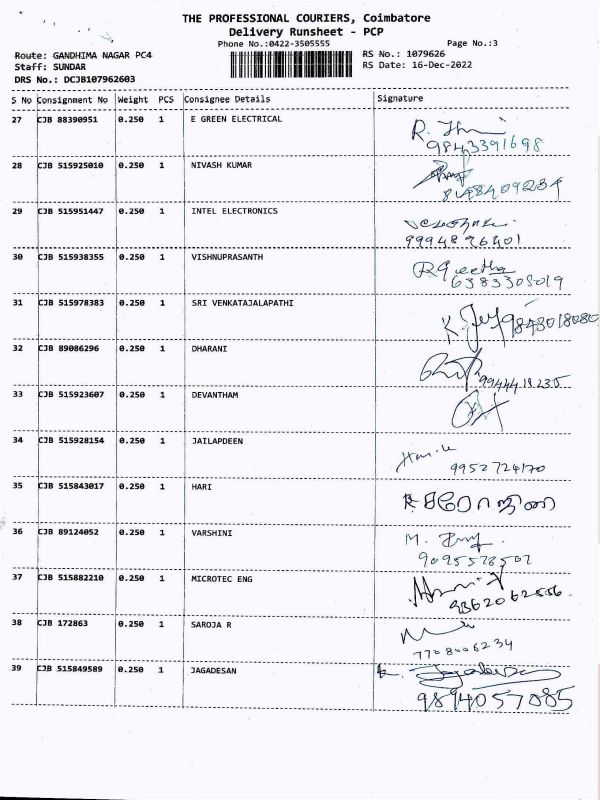 THE PROFESSIONAL COURIERS, Coimbatore
Delivery Runsheet - PCP
Phone No.:0422-3505555 Page No.:3
Route: GANDHIMA NAGAR PC4 RS No.: 1079626
Staff: SUNDAR RS Date: 16-Dec-2022
DRS No.: DCJB107962603
S No Consignment No Weight PCS Consignee Details Signature
27 CJB 88390951 0.250 1 E GREEN ELECTRICAL
9843391698
28 CJB 515925010 0.250 1 NIVASH KUMAR
8148409234
29 CJB 515951447 0.250 1 INTEL ELECTRONICS
9994896401
30 CJB 515938355 0.250 1 VISHNUPRASANTH
R Geetha
6383305019
31 CJB 515978383 0.250 1 SRI VENKATAJALAPATHI
9843018080
32 CJB 89086296 0.250 1 DHARANI
9944418235
33 CJB 515923607 0.250 1 DEVANTHAM
34 CJB 515928154 0.250 1 JAILAPDEEN
9952724170
35 CJB 515843017 0.250 1 HARI
36 CJB 89124052 0.250 1 VARSHINI
9095578502
37 CJB 515882210 0.250 1 MICROTEC ENG
9362062556
38 CJB 172863 0.250 1 SAROJA R
7708006234
39 CJB 515849589 0.250 1 JAGADESAN
9894057085